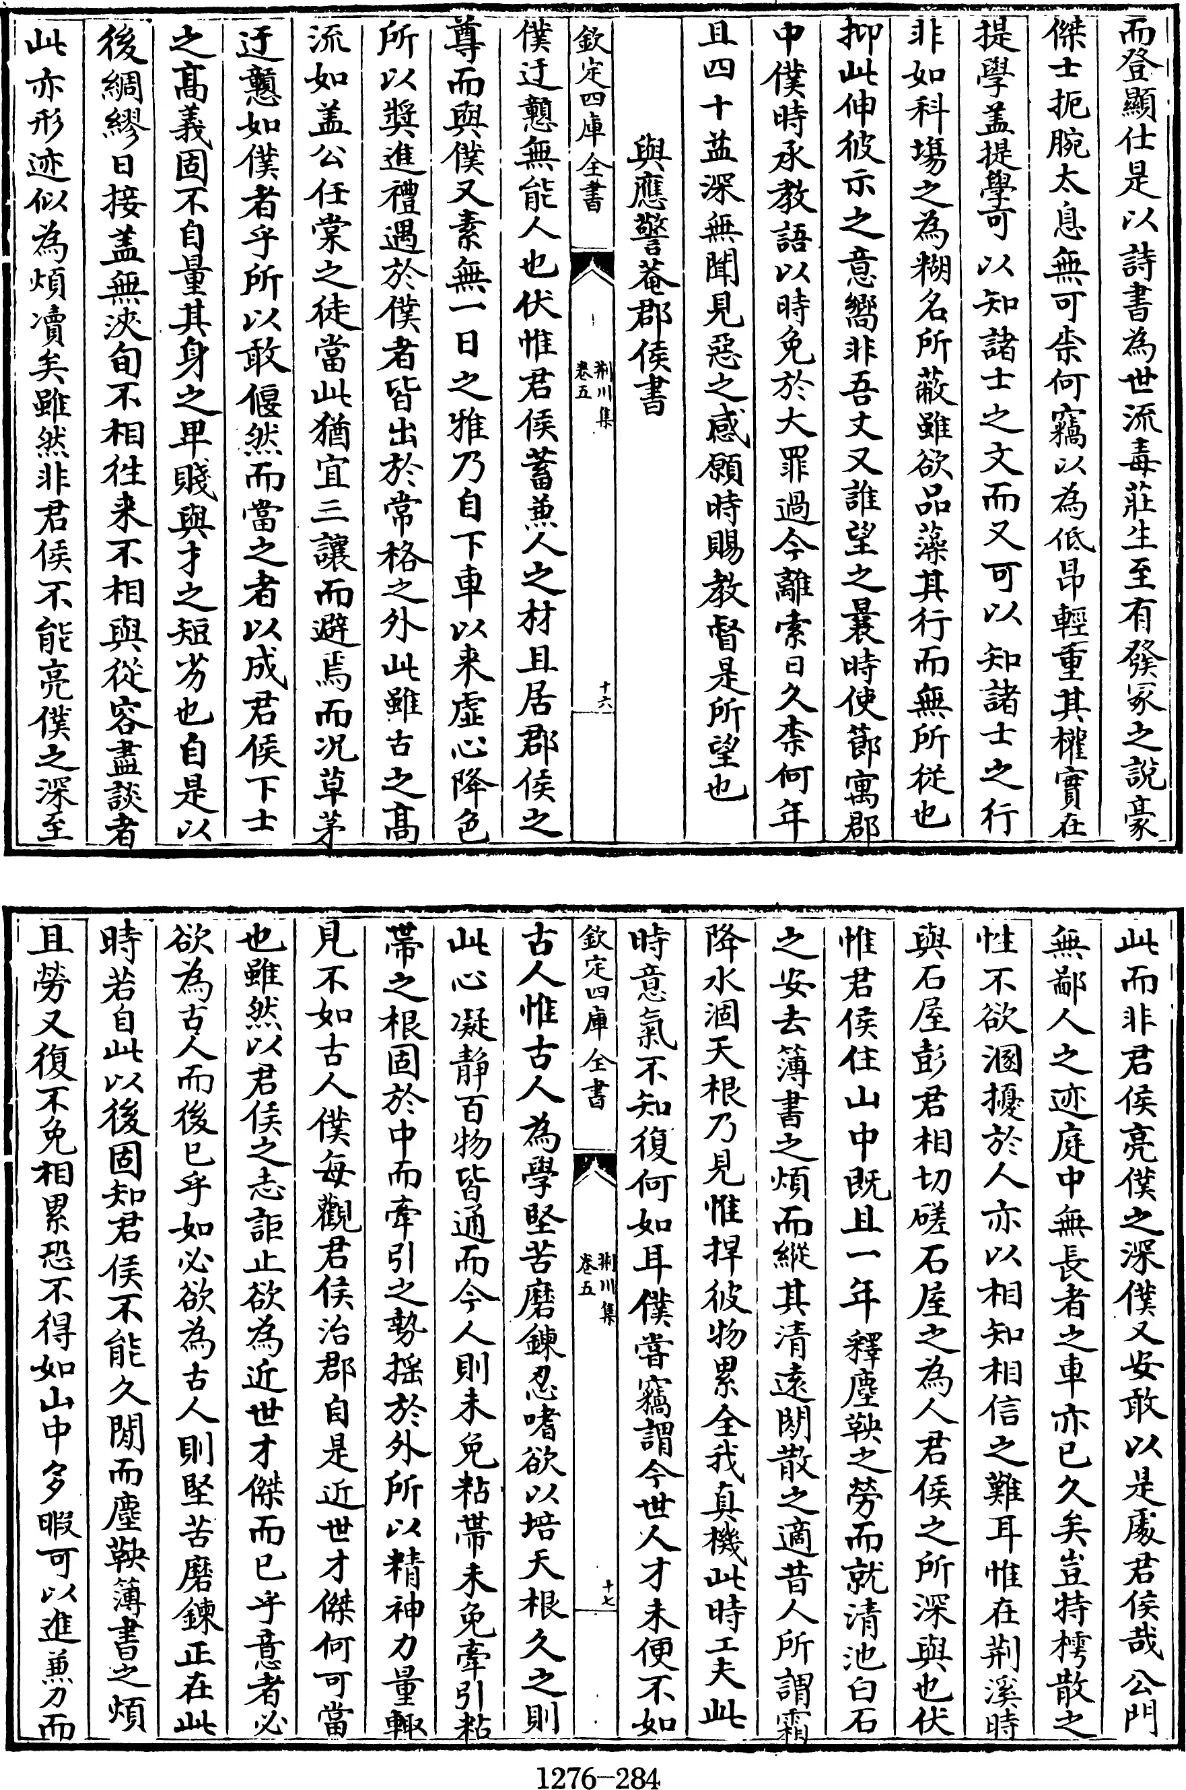 而登顯仕是以詩書為世流毒莊生至有發冢之說豪
傑士扼腕太息無可柰何竊以為低昂輕重其權實在
提學盖提學可以知諸士之文而又可以知諸士之行
非如科場之為糊名所蔽雖欲品藻其行而無所從也
抑此伸彼示之意嚮非吾丈又誰望之曩時使節寓郡
中僕時承教語以時免於大罪過今離索日久柰何年
且四十益深無聞見惡之感願時賜教督是所望也
與應警菴郡侯書
欽定四庫全書
荆川集
卷五
十六
僕迂戇無能人也伏惟君侯蓄兼人之材且居郡侯之
尊而與僕又素無一日之雅乃自下車以来虛心降色
所以奬進禮遇於僕者皆出於常格之外此雖古之髙
流如盖公任棠之徒當此猶宜三讓而避焉而况草茅
迂戇如僕者乎所以敢偃然而當之者以成君侯下士
之髙義固不自量其身之卑賤與才之短劣也自是以
後綢繆日接盖無浹旬不相往来不相與從容盡談者
此亦形迹似為煩凟矣雖然非君侯不能亮僕之深至
此而非君侯亮僕之深僕又安敢以是處君侯哉公門
無鄙人之迹庭中無長者之車亦已久矣豈特樗散之
性不欲溷擾於人亦以相知相信之難耳惟在荆溪時
與石屋彭君相切磋石屋之為人君侯之所深與也伏
惟君侯住山中既且一年釋塵鞅之勞而就清池白石
之安去簿書之煩而縱其清遠閒散之適昔人所謂霜
降水涸天根乃見惟捍彼物累全我真機此時工夫此
時意氣不知復何如耳僕嘗竊謂今世人才未便不如
欽定四庫全書
荆川集
卷五
十七
古人惟古人為學堅苦磨鍊忍嗜欲以培天根久之則
此心凝靜百物皆通而今人則未免粘帶未免牽引粘
帶之根固於中而牽引之勢揺於外所以精神力量輙
見不如古人僕每觀君侯治郡自是近世才傑何可當
也雖然以君侯之志詎止欲為近世才傑而已乎意者必
欲為古人而後已乎如必欲為古人則堅苦磨鍊正在此
時若自此以後固知君侯不能久閒而塵鞅簿書之煩
且勞又復不免相累恐不得如山中多暇可以進兼力而
1276-284